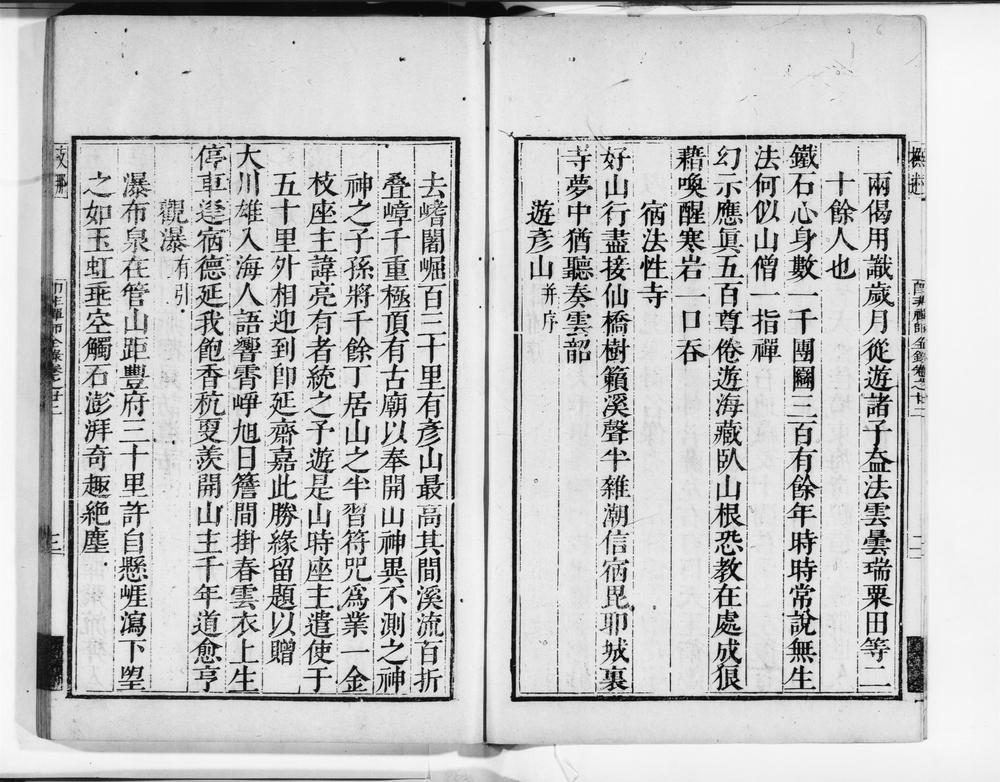 兩偈用識歲月從遊諸子益法雲曇瑞粟田等二
十餘人也
鐵石心身數一千團圞三百有餘年時時常說無生
法何似山僧一指禪
幻示應眞五百尊倦遊海藏臥山根恐教在處成狼
藉喚醒寒岩一口吞
宿法性寺
好山行盡接仙橋樹籟溪聲半雜潮信宿毘耶城裏
寺夢中猶聽奏雲韶
遊彦山并序
去嶍闍崛百三十里有彦山最高其間溪流百折
疊嶂千重極頂有古廟以奉開山神異不測之神
神之子孫將千餘丁居山之半習符咒爲業一金
枝座主諱亮有者統之予遊是山時座主遣使于
五十里外相迎到卽延齋嘉此勝緣留題以贈
大川雄入海人語響霄崢旭日簷間掛春雲衣上生
停車逢宿德延我飽香杭夏羨開山主千年道愈亨
觀瀑有引
瀑布泉在管山距豐府二十里許自懸崕瀉下朢
之如玉虹垂空觸石澎湃奇趣絶塵
卽非禪師全錄卷之廿二